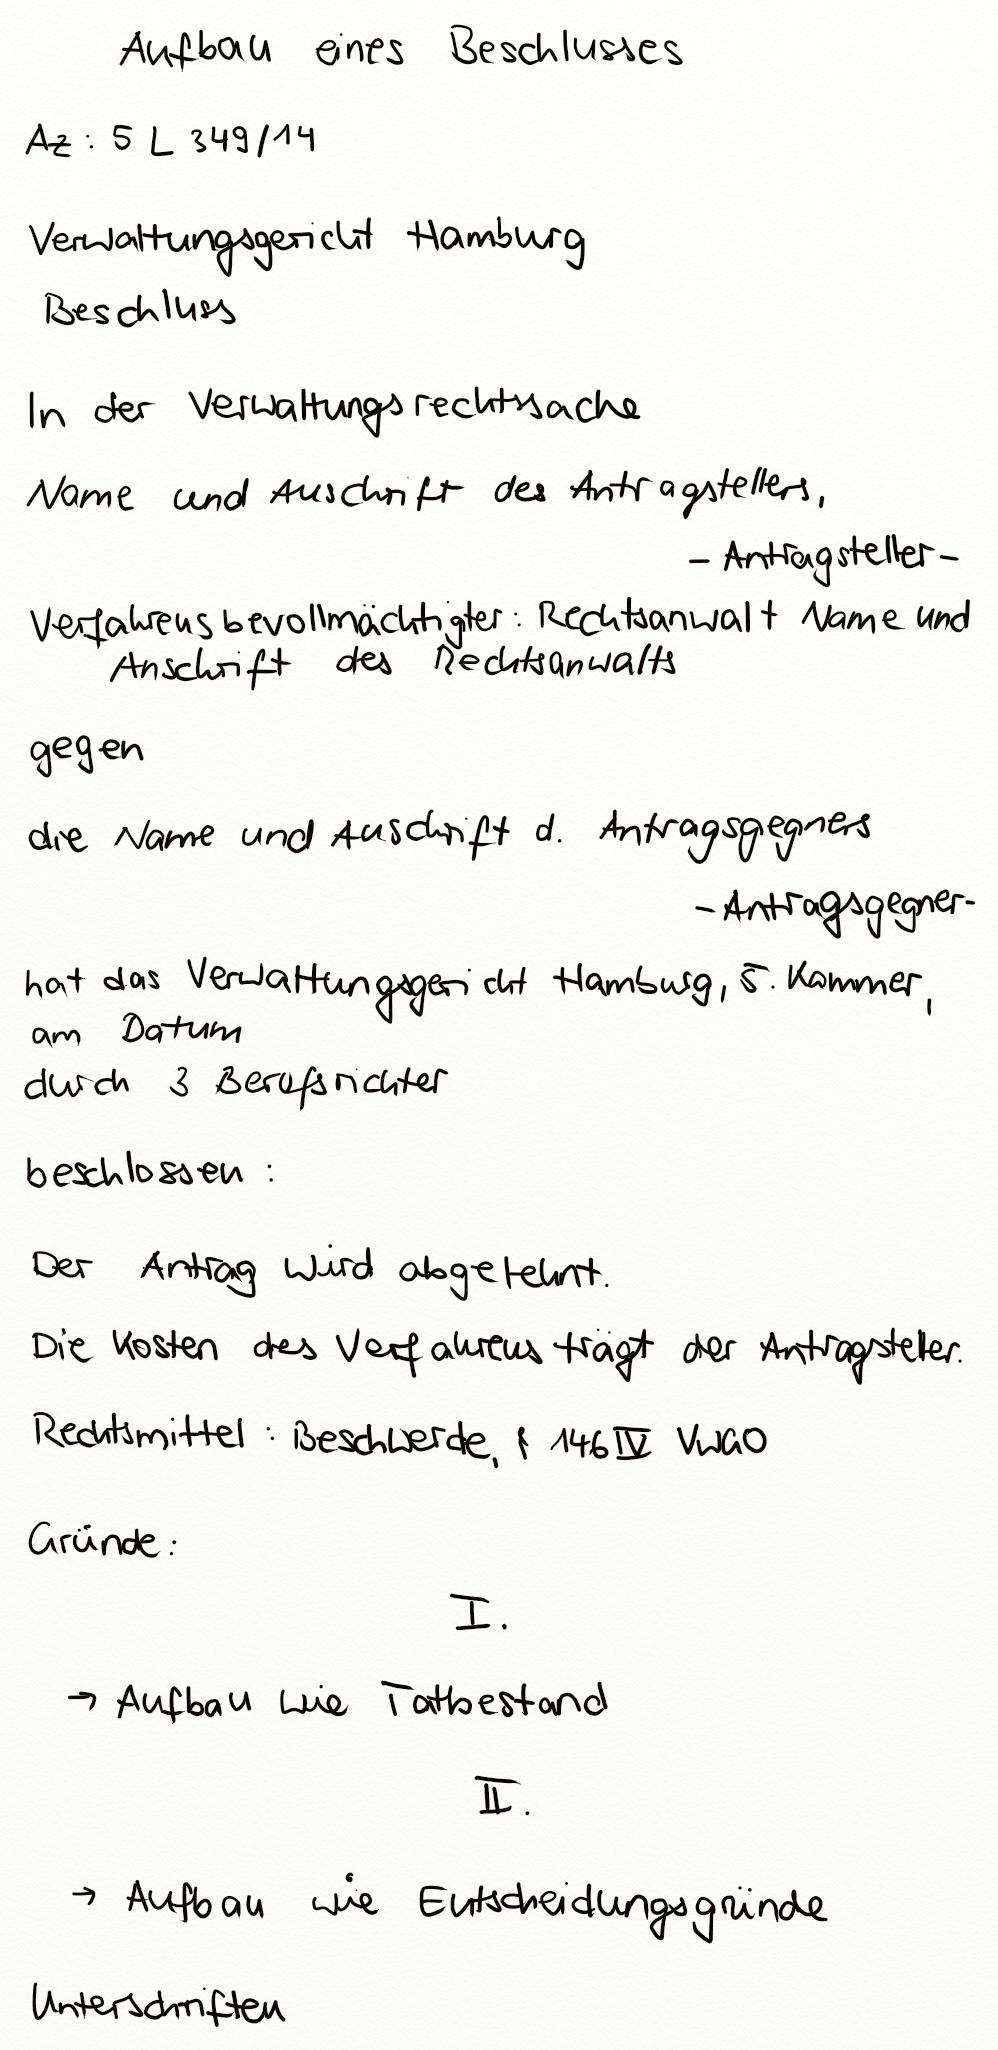 Aufbau eines Beschlusses
Az: 5 L 349/14
Verwaltungsgericht Hamburg
Beschluss
In der Verwaltungsrechtssache
Name und Anschrift des Antragstellers,
- Antragsteller -
Verfahrensbevollmächtigter: Rechtsanwalt Name und
Anschrift des Rechtsanwalts
gegen
die Name und Anschrift d. Antragsgegners
- Antragsgegner -
hat das Verwaltungsgericht Hamburg, 5. Kammer,
am Datum
durch 3 Berufsrichter
beschlossen:
Der Antrag wird abgelehnt.
Die Kosten des Verfahrens trägt der Antragsteller.
Rechtsmittel: Beschwerde, § 146 IV VwGO
Gründe:
I.
→ Aufbau wie Tatbestand
II.
→ Aufbau wie Entscheidungsgründe
Unterschriften